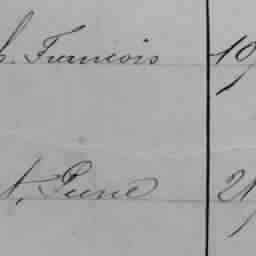 h. Francois 19
t, Pierre 21